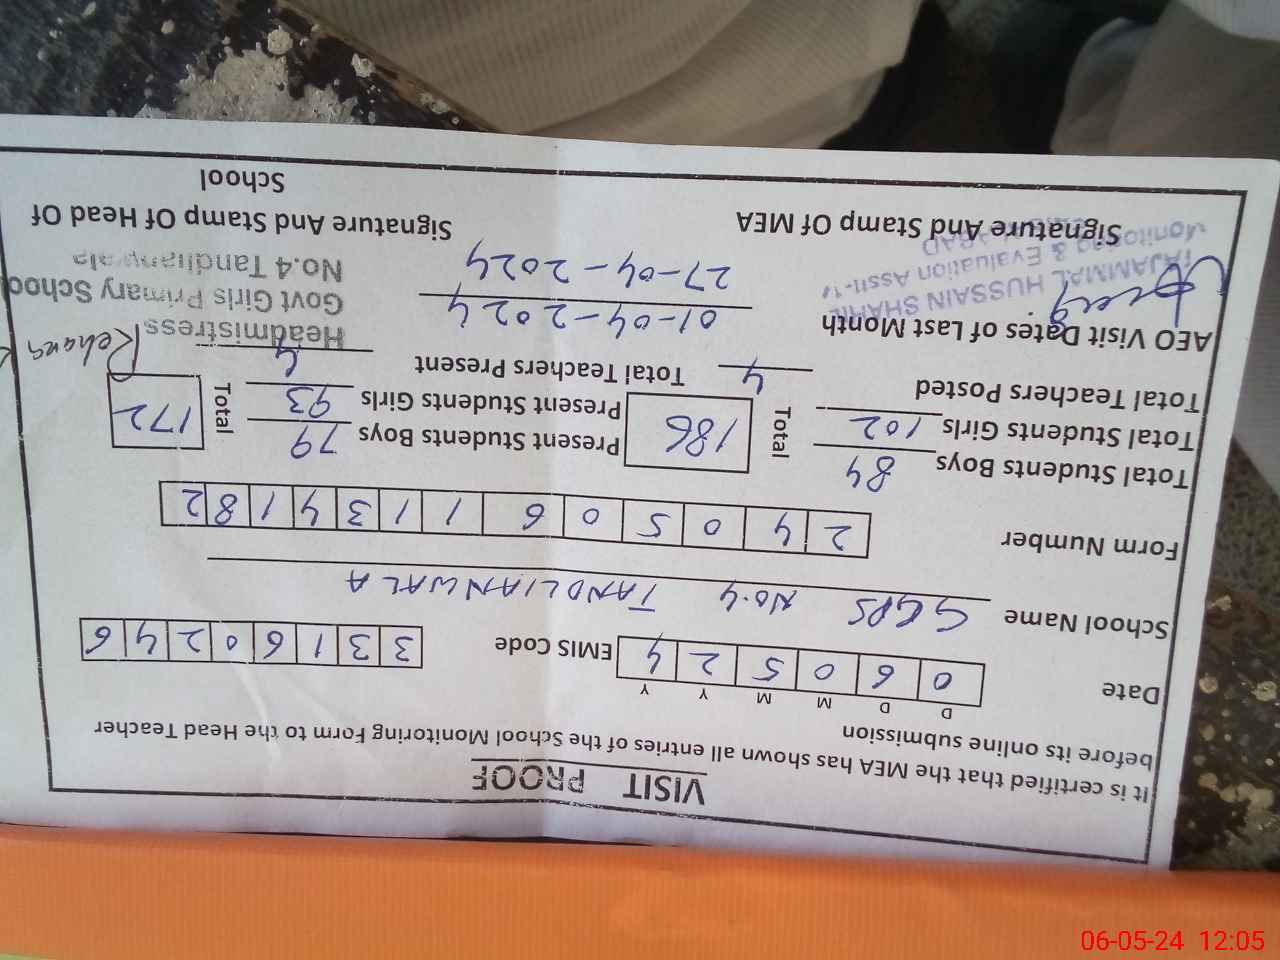 VISIT PROOF
It is certified that the MEA has shown all entries of the School Monitoring Form to the Head Teacher
before its online submission
D D M M Y Y
Date 0 6 0 5 2 4 EMIS Code 3 3 1 6 0 2 4 6
School Name GGPS No.4 TANDLIANWALA
Form Number 2 4 0 5 0 6 1 1 3 4 1 8 2
Total Students Boys 84 Total 186 Present Students Boys 79 Total 172
Total Students Girls 102 Present Students Girls 93
Total Teachers Posted 4 Total Teachers Present 4
AEO Visit Dates of Last Month 01-04-2024
27-04-2024
TAJAMMAL HUSSAIN
Monitoring & Evaluation
Headmistress
Govt Girls Primary School
No.4 Tandlianwala
Signature And Stamp Of MEA
Signature And Stamp Of Head Of
School
06-05-24 12:05